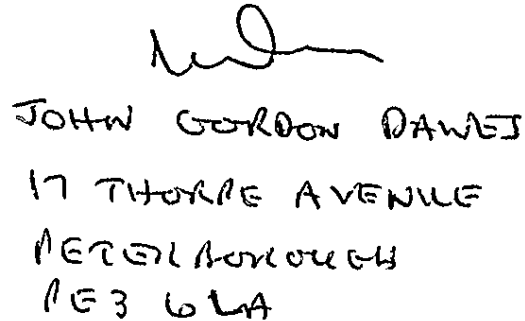 JOHN GORDON DAWES
17 THORPE AVENUE
PETERBOROUGH
PE3 6LA